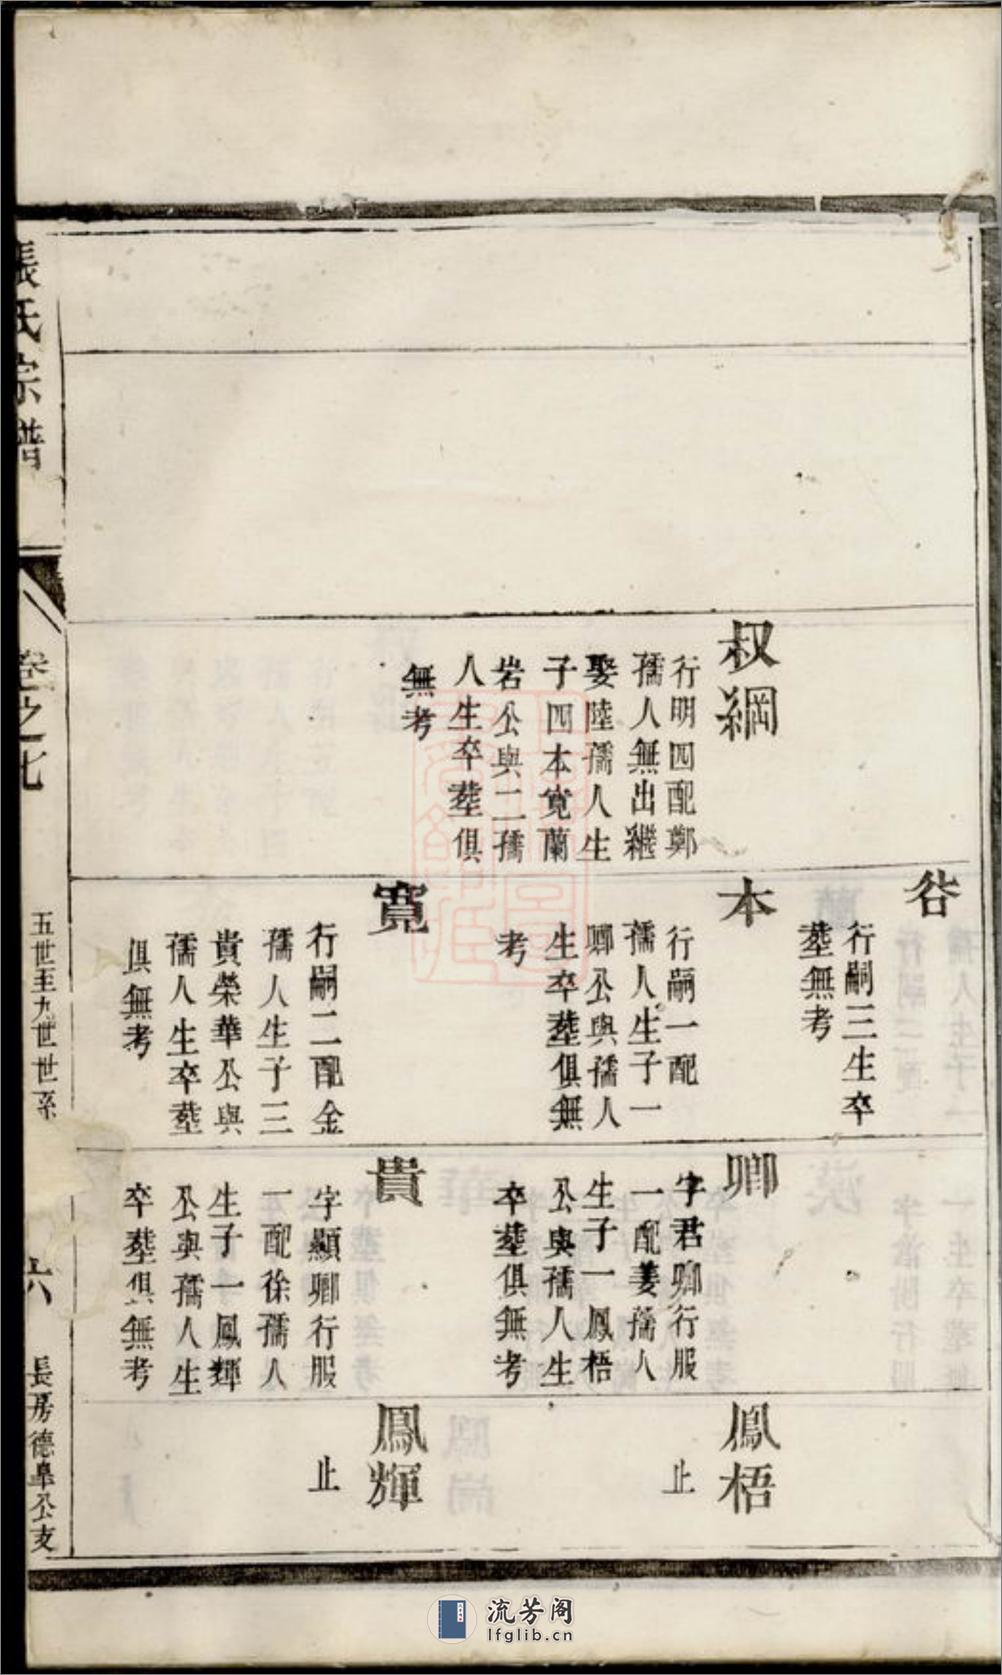 張氏宗譜
卷之七
五世至九世世系
六
長房德臯公支
叔綱
行明四配鄭
孺人無出繼
娶陸孺人生
子四本寬蘭
岩公與二孺
人生卒塟俱
無考
谷
行嗣三生卒
塟無考
本
行嗣一配
孺人生子一
卿公與孺人
生卒塟俱無
考
寬
行嗣二配金
孺人生子三
貴榮華公與
孺人生卒塟
俱無考
卿
字君卿行服
一配姜孺人
生子一鳳梧
公與孺人生
卒塟俱無考
貴
字顯卿行服
一配徐孺人
生子一鳳輝
公與孺人生
卒塟俱無考
鳳梧
止
鳳輝
止
流芳阁
lfglib.cn